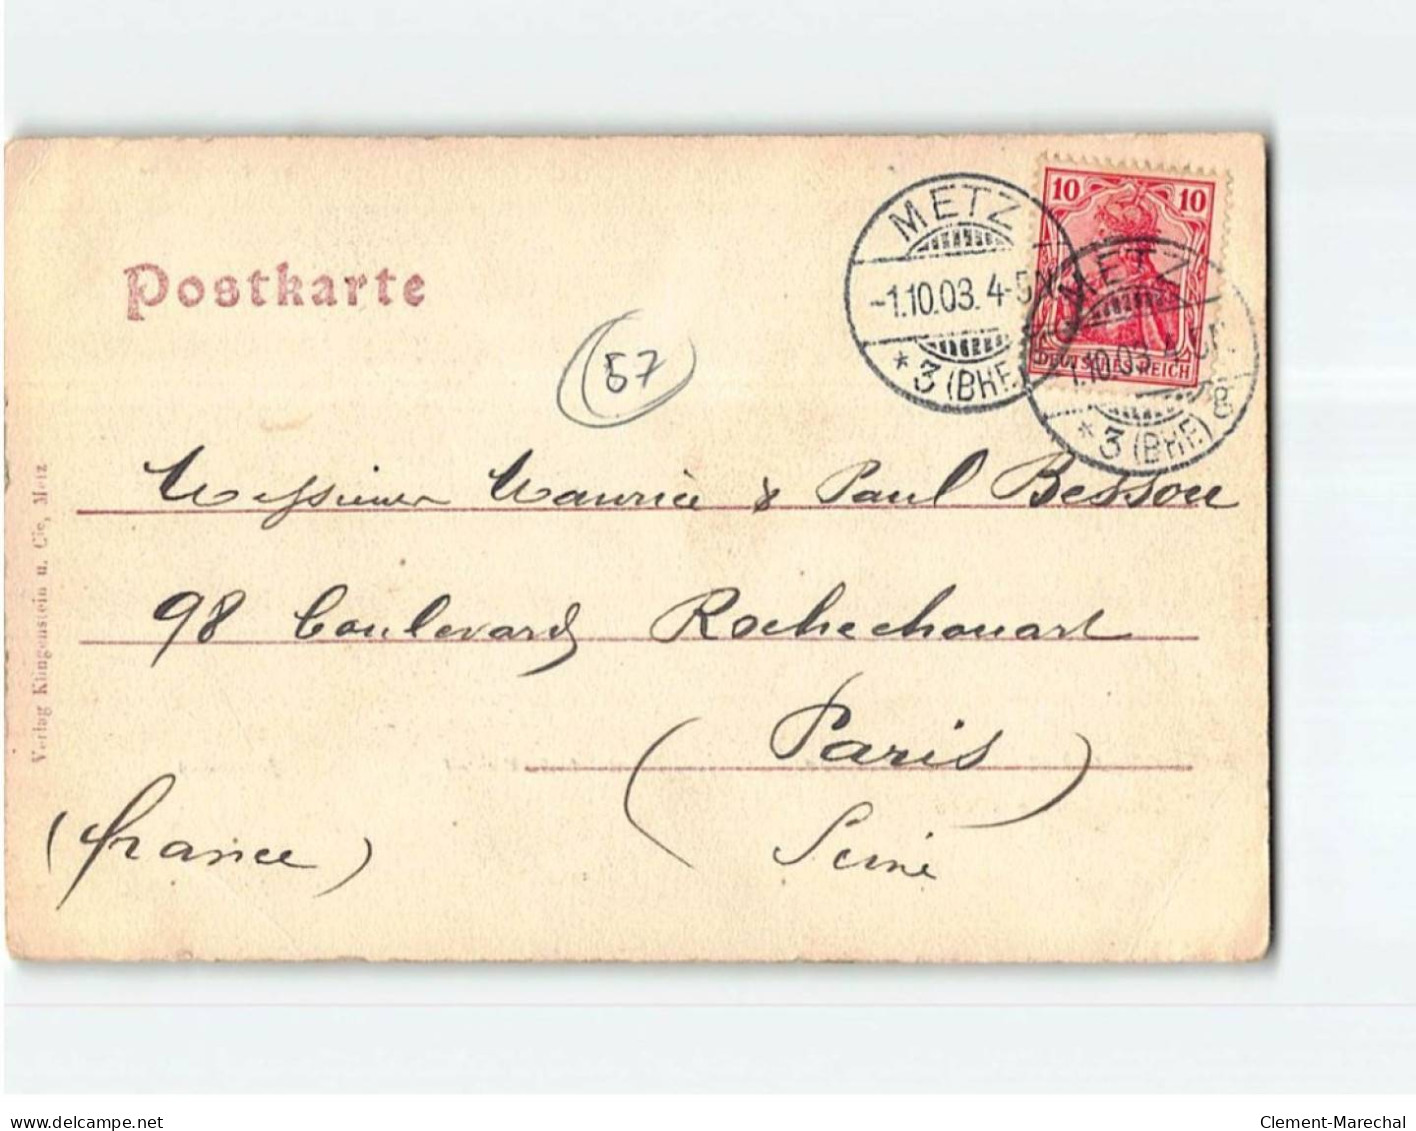 Postkarte
METZ
-1.10.03. 4-5N
* 3 (BHF.)
10 10
DEUTSCHES REICH
METZ
1.10.03. 4-5N
* 3 (BHF.) g
57
Messieurs Maurice & Paul Besson
98 boulevard Rochechouart
( Paris )
Seine
(france)
Verlag Klingenstein u. Cie, Metz
delcampe.net
Clement-Marechal